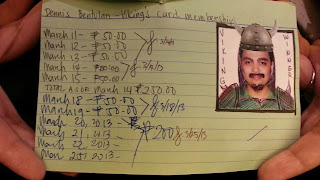 Dennis Bentulan - Vikings Card membership
March 11 - ₱50.00
March 12 - ₱50.00
March 13 - ₱50.00
March 14 - ₱50.00
March 15 - ₱50.00
TOTAL AS OF MARCH 14 ₱250.00
March 18 - ₱50.00
March 19 - ₱50.00
3/18/13
March 20, 2013 -
March 21, 2013 -
March 22, 2013 -
Mar 25, 2013 -
₱200
3/25/13
VIKINGS
WINNER